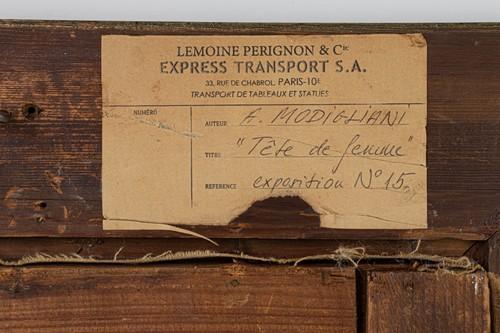 LEMOINE PERIGNON & Cie
EXPRESS TRANSPORT S.A.
33, RUE DE CHABROL, PARIS-10E
TRANSPORT DE TABLEAUX ET STATUES
NUMÉRO
AUTEUR A. MODIGLIANI
TITRE "Tête de femme"
REFERENCE exposition N°15